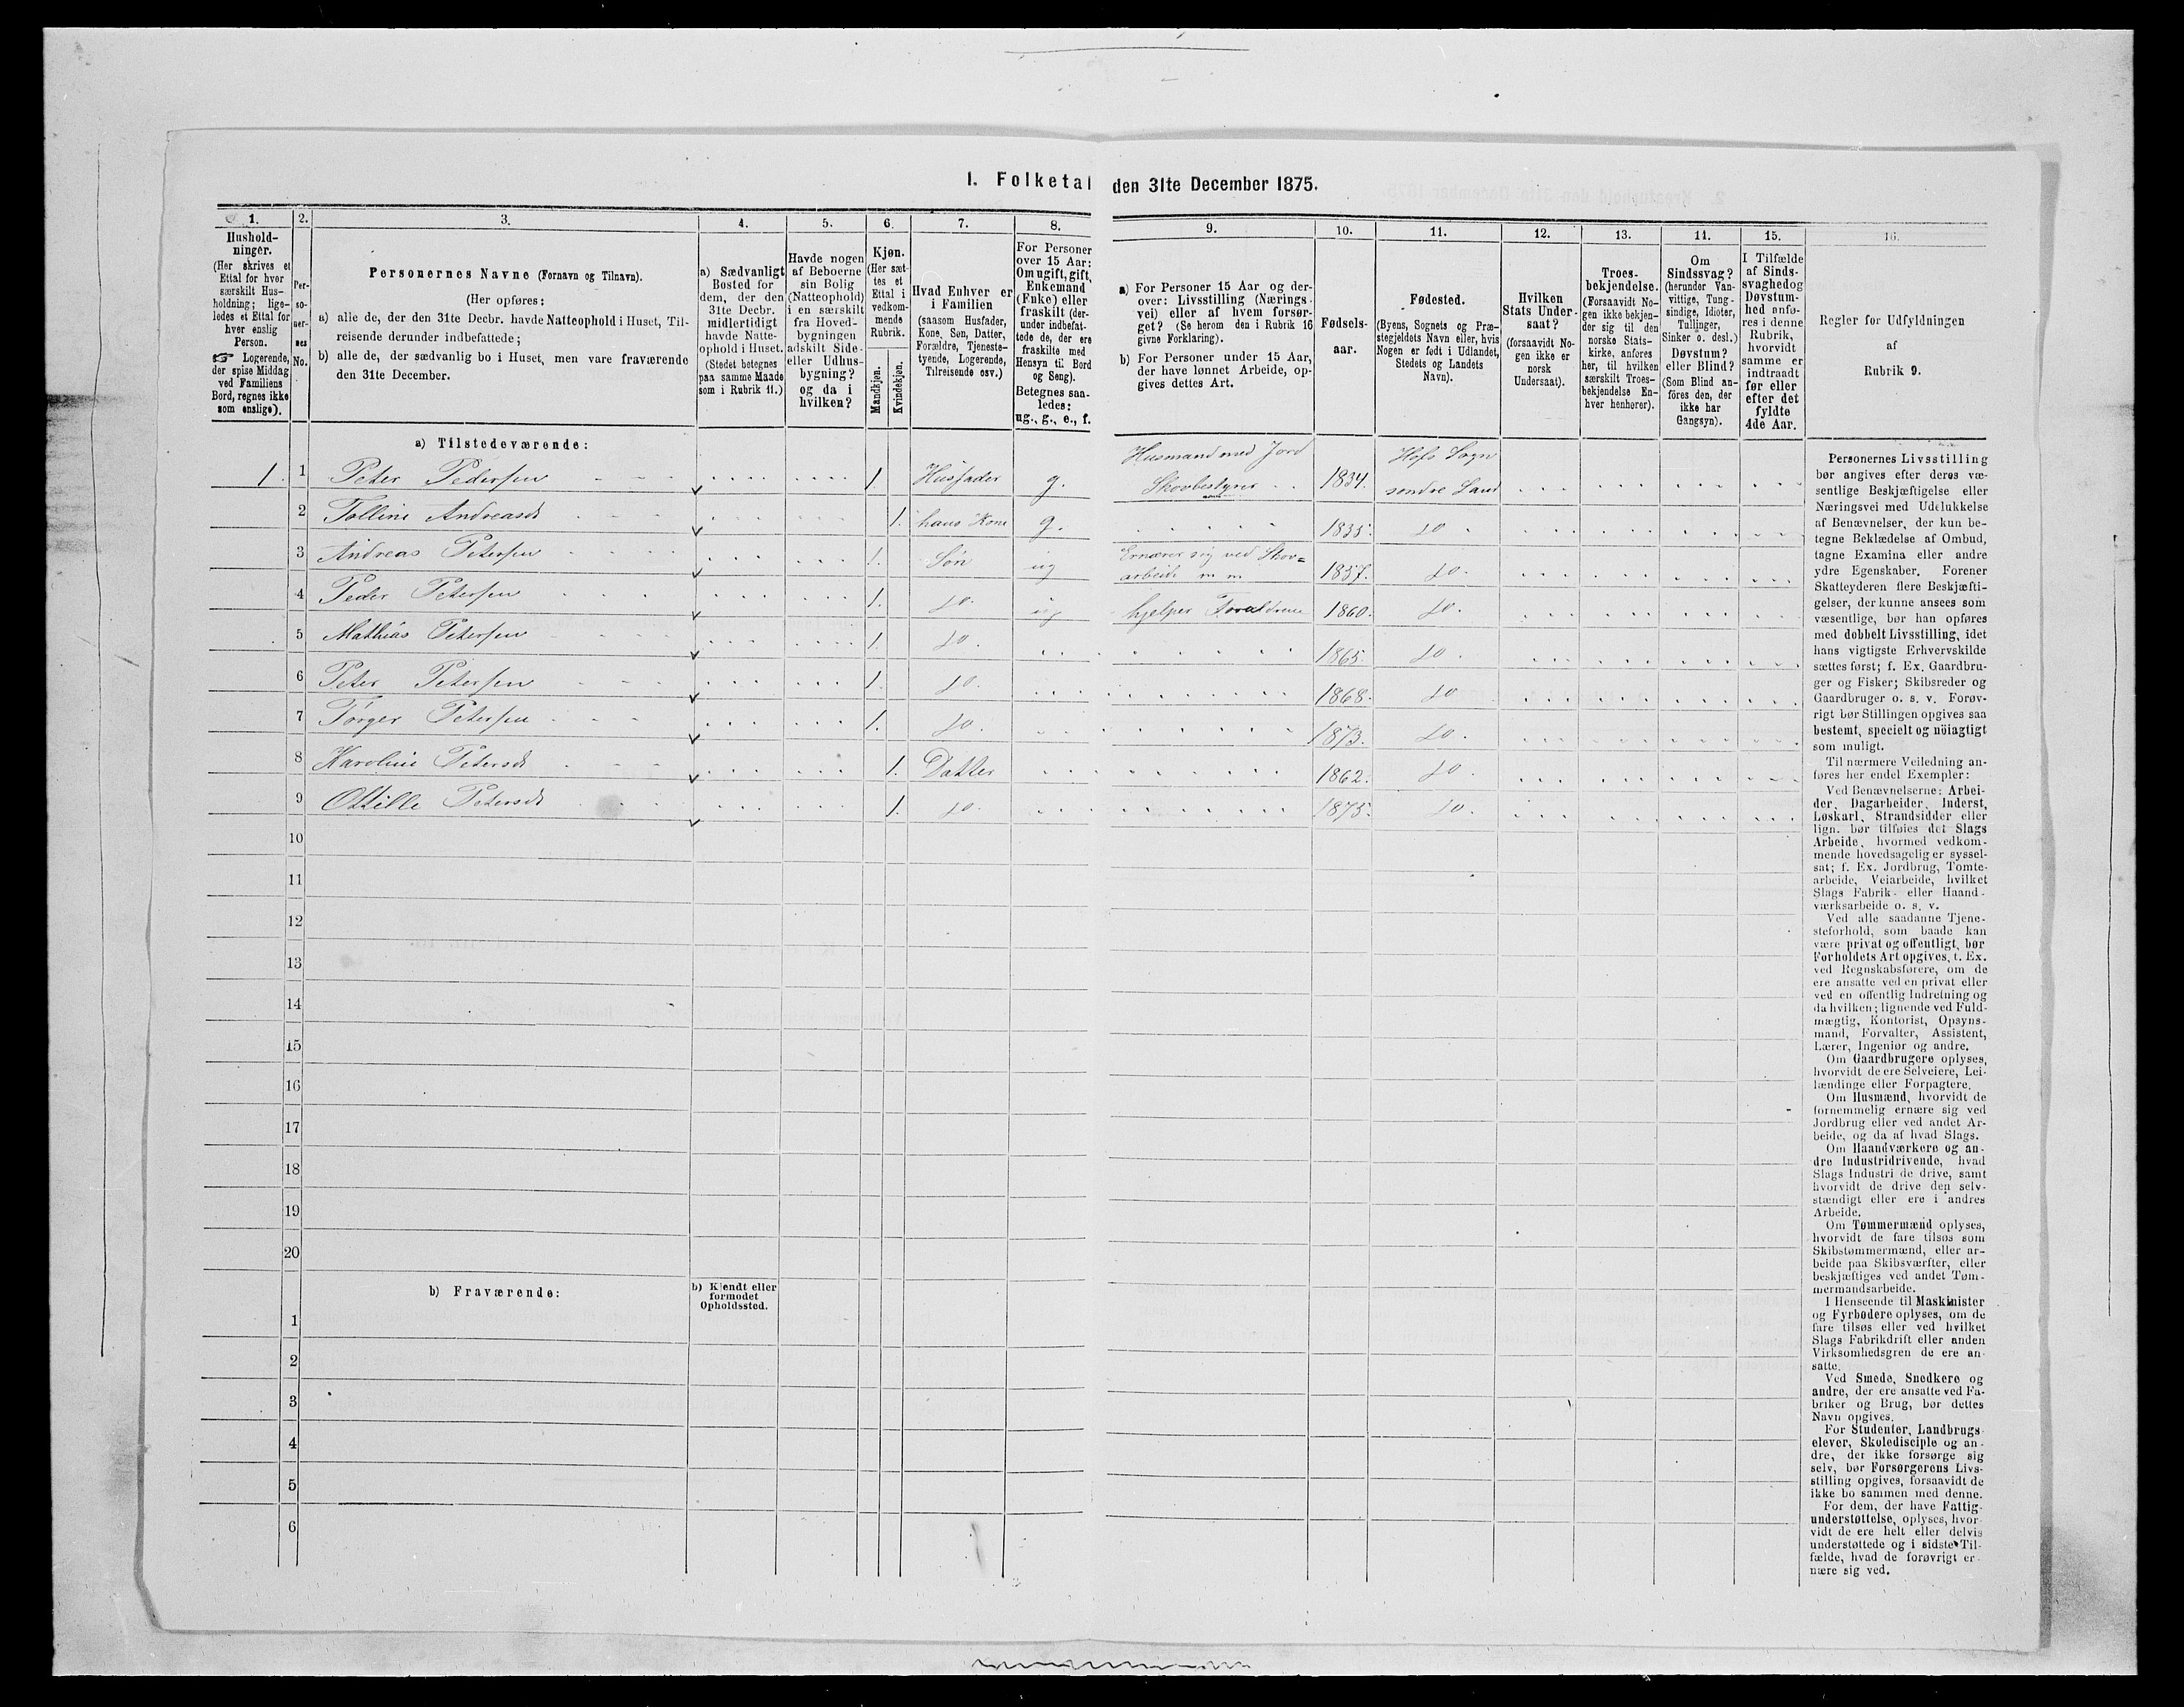 1. Folketal den 31te December 1875.
1. 2. 3. 4. 5. 6. 7. 8. 9. 10. 11. 12. 13. 14. 15. 16.
Hushold-
ninger.
(Her skrives et
Ettal for hver
særskilt Hus-
holdning; lige-
ledes et Ettal for
hver enslig
Person.
☞ Logerende,
der spise Middag
ved Familiens
Bord, regnes ikke
som enslige).
Per-
so-
ner-
nes
No.
Personernes Navne (Fornavn og Tilnavn).
(Her opføres:
a) alle de, der den 31te Decbr. havde Natteophold i Huset, Til-
reisende derunder indbefattede;
b) alle de, der sædvanlig bo i Huset, men vare fraværende
den 31te December.
a) Sædvanligt
Bosted for
dem, der den
31te Decbr.
midlertidigt
havde Natte-
ophold i Huset.
(Stedet betegnes
paa samme Maade
som i Rubrik 11.)
Havde nogen
af Beboerne
sin Bolig
(Natteophold)
i en særskilt
fra Hoved-
bygningen
adskilt Side-
eller Udhus-
bygning?
og da i
hvilken?
Kjøn.
(Her sæt-
tes et
Ettal i
vedkom-
mende
Rubrik.
Mandkjøn.
Kvindekjøn.
Hvad Enhver er
i Familien
(saasom Husfader,
Kone, Søn, Datter,
Forældre, Tjeneste-
tyende, Logerende,
Tilreisende osv.)
For Personer
over 15 Aar:
Om ugift, gift,
Enkemand
(Enke) eller
fraskilt (der-
under indbefat-
tede de, der ere
fraskilte med
Hensyn til Bord
og Seng).
Betegnes saa-
ledes:
ug., g., e., f.
a) For Personer 15 Aar og der-
over: Livsstilling (Nærings-
vei) eller af hvem forsør-
get? (Se herom den i Rubrik 16
givne Forklaring).
b) For Personer under 15 Aar,
der have lønnet Arbeide, op-
gives dettes Art.
Fødsels-
aar.
Fødested.
(Byens, Sognets og Præ-
stegjeldets Navn eller, hvis
Nogen er født i Udlandet,
Stedets og Landets
Navn).
Hvilken
Stats Under-
saat?
(forsaavidt No-
gen ikke er
norsk
Undersaat).
Troes-
bekjendelse.
(Forsaavidt No-
gen ikke bekjen-
der sig til den
norske Stats-
kirke, anføres
her, til hvilken
særskilt Troes-
bekjendelse En-
hver henhører).
Om
Sindssvag?
(herunder Van-
vittige, Tung-
sindige, Idioter,
Tullinger,
Sinker o. desl.)
Døvstum?
eller Blind?
(Som Blind an-
føres den, der
ikke har
Gangsyn).
I Tilfælde
af Sinds-
svaghed og
Døvstum-
hed anfø-
res i denne
Rubrik,
hvorvidt
samme er
indtraadt
før eller
efter det
fyldte
4de Aar.
Regler for Udfyldningen
af
Rubrik 9.
a) Tilstedeværende:
1. 1 Peter Pedersen 1. Husfader g. Husmand med Jord Skovbestyrer 1834. Hofs Sogn søndre Land
2 Tolline Andreasdt 1. hans Kone g. 1835. do.
3 Andreas Petersen 1. Søn ug Ernærer sig ved Skov=
arbeide m m 1857. do.
4 Peder Petersen 1. do. ug hjelper Forældrene 1860. do.
5 Mathias Petersen 1. do. 1865. do.
6 Peter Petersen 1. do. 1868. do.
7 Torger Petersen 1. do. 1873. do.
8 Karoline Petersdt 1. Datter 1862. do.
9 Ottille Petersdt 1. do. 1875. do.
10
11
12
13
14
15
16
17
18
19
20
b) Fraværende:
b) Kjendt eller
formodet
Opholdssted.
1
2
3
4
5
6
Personernes Livsstilling
bør angives efter deres væ-
sentlige Beskjæftigelse eller
Næringsvei med Udelukkelse
af Benævnelser, der kun be-
tegne Beklædelse af Ombud,
tagne Examina eller andre
ydre Egenskaber. Forener
Skatteyderen flere Beskjæfti-
gelser, der kunne ansees som
væsentlige, bør han opføres
med dobbelt Livsstilling, idet
hans vigtigste Erhvervskilde
sættes først; f. Ex. Gaardbru-
ger og Fisker; Skibsreder og
Gaardbruger o. s. v. Forøv-
rigt bør Stillingen opgives saa
bestemt, specielt og nöiagtigt
som muligt.
Til nærmere Veiledning an-
føres her endel Exempler:
Ved Benævnelserne: Arbei-
der, Dagarbeider, Inderst,
Løskarl, Strandsidder eller
lign. bør tilføies det Slags
Arbeide, hvormed vedkom-
mende hovedsagelig er syssel-
sat; f. Ex. Jordbrug, Tomte-
arbeide, Veiarbeide, hvilket
Slags Fabrik- eller Haand-
værksarbeide o. s. v.
Ved alle saadanne Tjene-
steforhold, som baade kan
være privat og offentligt, bør
Forholdets Art opgives, t. Ex.
ved Regnskabsførere, om de
ere ansatte ved en privat eller
ved en offentlig Indretning og
da hvilken; lignende ved Fuld-
mægtig, Kontorist, Opsyns-
mand, Forvalter, Assistent,
Lærer, Ingeniør og andre.
Om Gaardbrugere oplyses,
hvorvidt de ere Selveiere, Lei-
lændinge eller Forpagtere.
Om Husmænd, hvorvidt de
fornemmelig ernære sig ved
Jordbrug eller ved andet Ar-
beide, og da af hvad Slags.
Om Haandværkere og an-
dre Industridrivende, hvad
Slags Industri de drive, samt
hvorvidt de drive den selv-
stændigt eller ere i andres
Arbeide.
Om Tømmermænd oplyses,
hvorvidt de fare tilsøs som
Skibstømmermænd, eller ar-
beide paa Skibsværfter, eller
beskjæftiges ved andet Tøm-
mermandsarbeide.
I Henseende til Maskinister
og Fyrbødere oplyses, om de
fare tilsøs eller ved hvilket
Slags Fabrikdrift eller anden
Virksomhedsgren de ere an-
satte.
Ved Smede, Snedkere og
andre, der ere ansatte ved Fa-
briker og Brug, bør dettes
Navn opgives.
For Studenter, Landbrugs-
elever, Skoledisciple og an-
dre, der ikke forsørge sig
selv, bør Forsørgerens Livs-
stilling opgives, forsaavidt de
ikke bo sammen med denne.
For dem, der have Fattig-
understøttelse, oplyses, hvor-
vidt de ere helt eller delvis
understøttede og i sidste Til-
fælde, hvad de forøvrigt er-
nære sig ved.